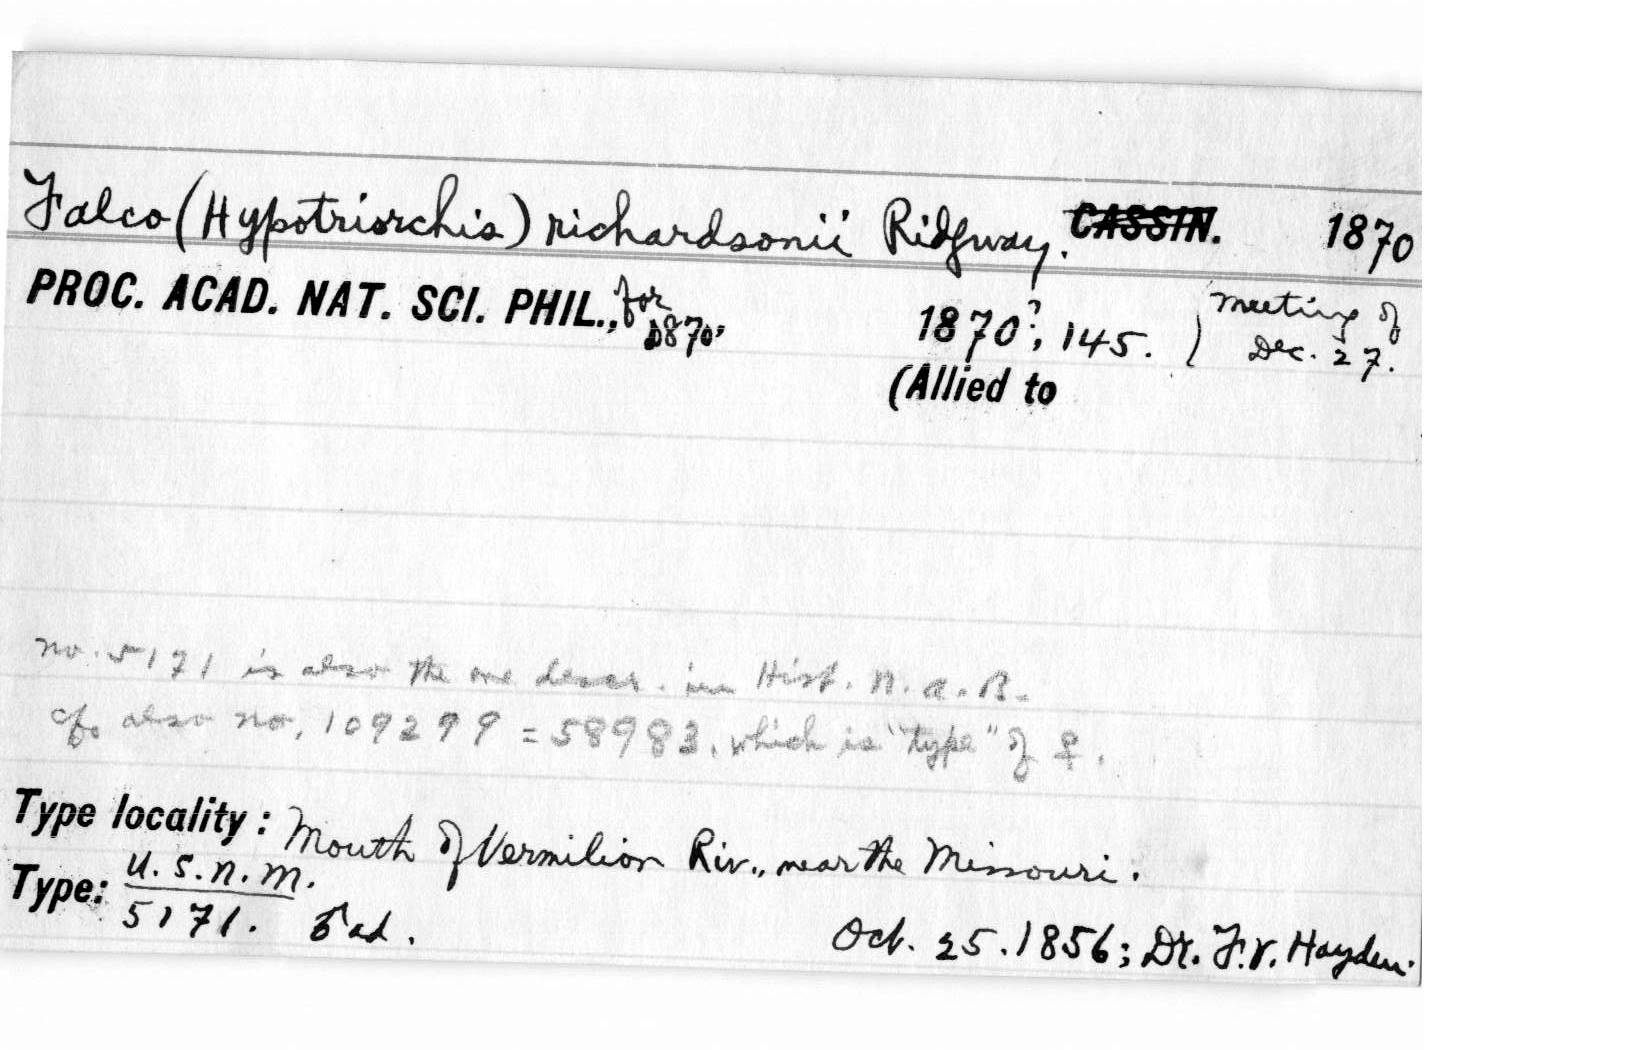 Falco (Hypotriorchis) richardsonii Ridgway. CASSIN. 1870
PROC. ACAD. NAT. SCI. PHIL., for 1870, 1870?, 145. (Meeting of Dec. 27.
(Allied to
no. 5171 is also the one descr. in Hist. N. A. B.
cf. also no. 109299 = 58983, which is "type" of ♀.
Type locality: Mouth of Vermilion Riv., near the Missouri.
Type: U.S.N.M. 5171. ♂ ad. Oct. 25. 1856; Dr. F.V. Hayden.